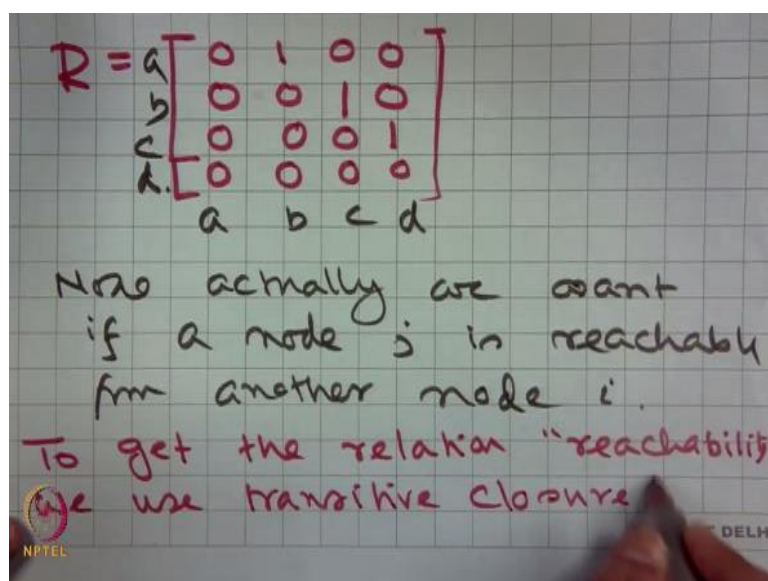 R = a [ 0 1 0 0 ]
b 0 0 1 0
c 0 0 0 1
d. 0 0 0 0
a b c d
Now actually we want
if a node j is reachable
from another node i.
To get the relation "reachability
We use transitive closure
NPTEL
DELH